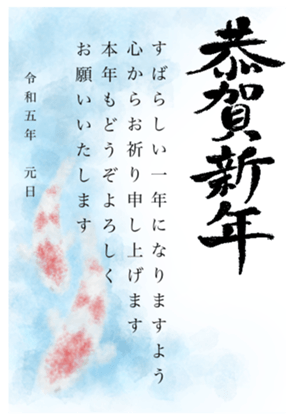 恭賀新年
すばらしい一年になりますよう
心からお祈り申し上げます
本年もどうぞよろしく
お願いいたします
令和五年 元日